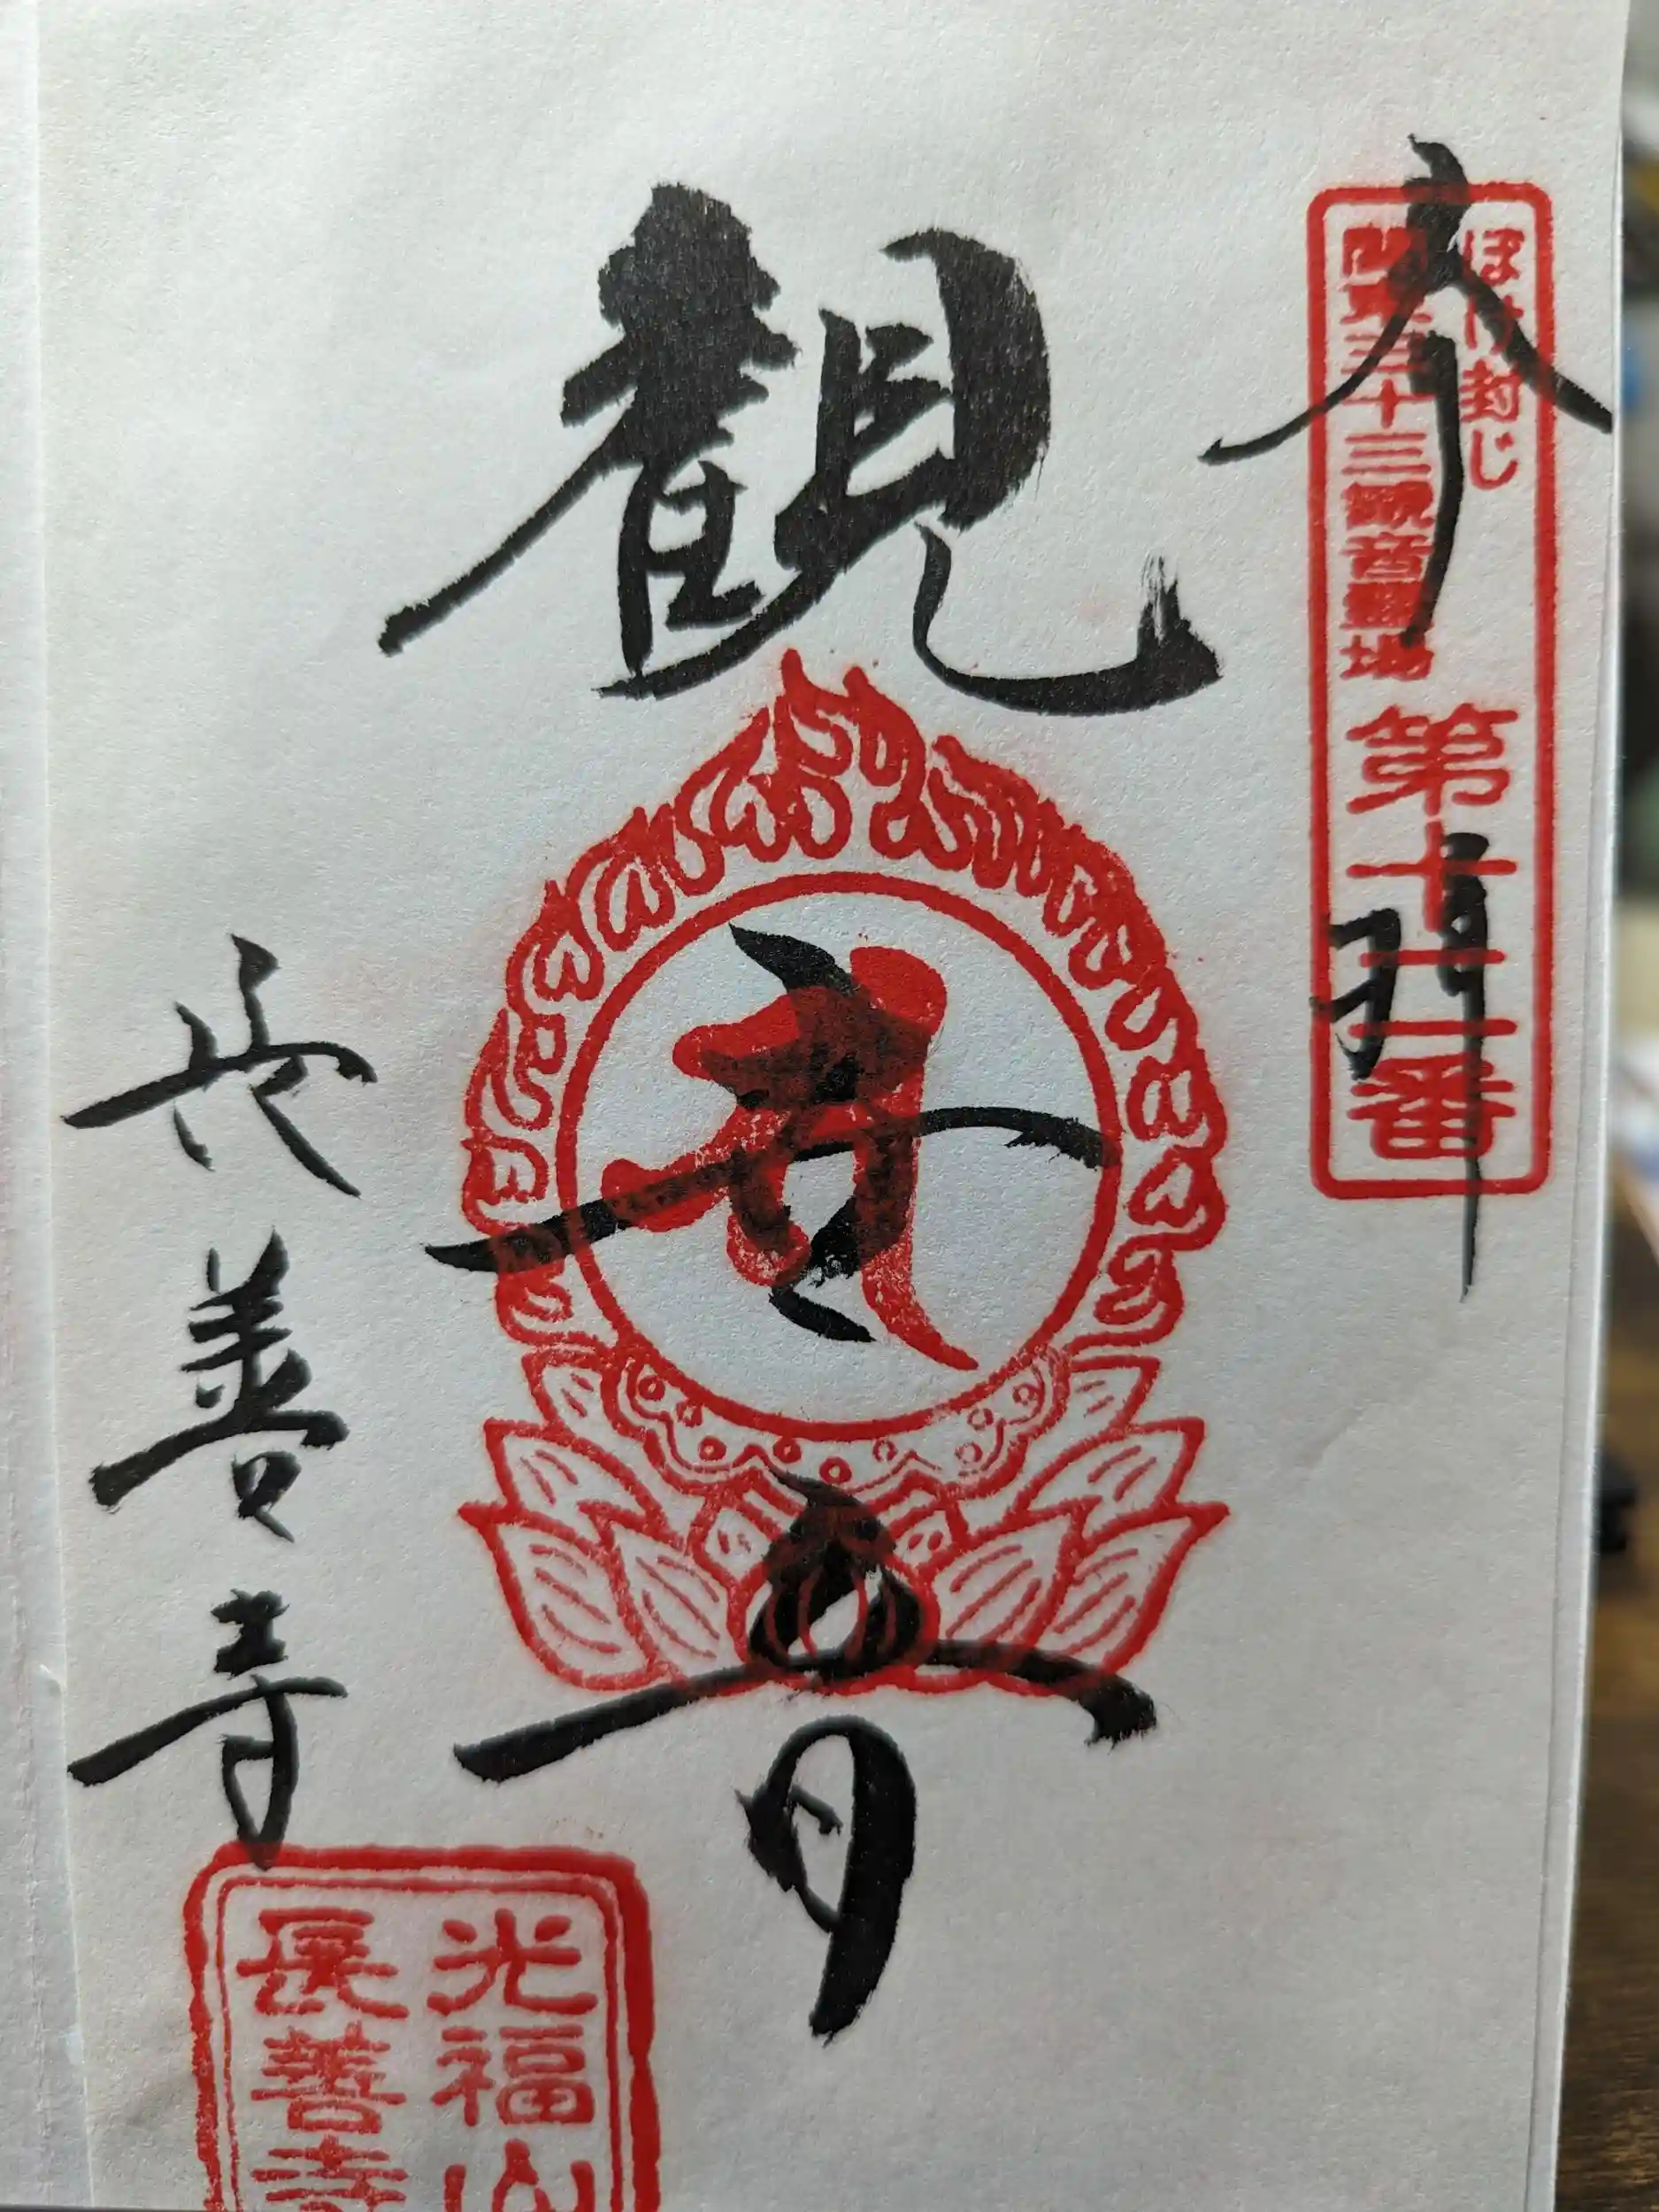 奉拝
ぼけ封じ
関東三十三観音霊場
第十二番
観世音
長善寺
光福山
長善寺